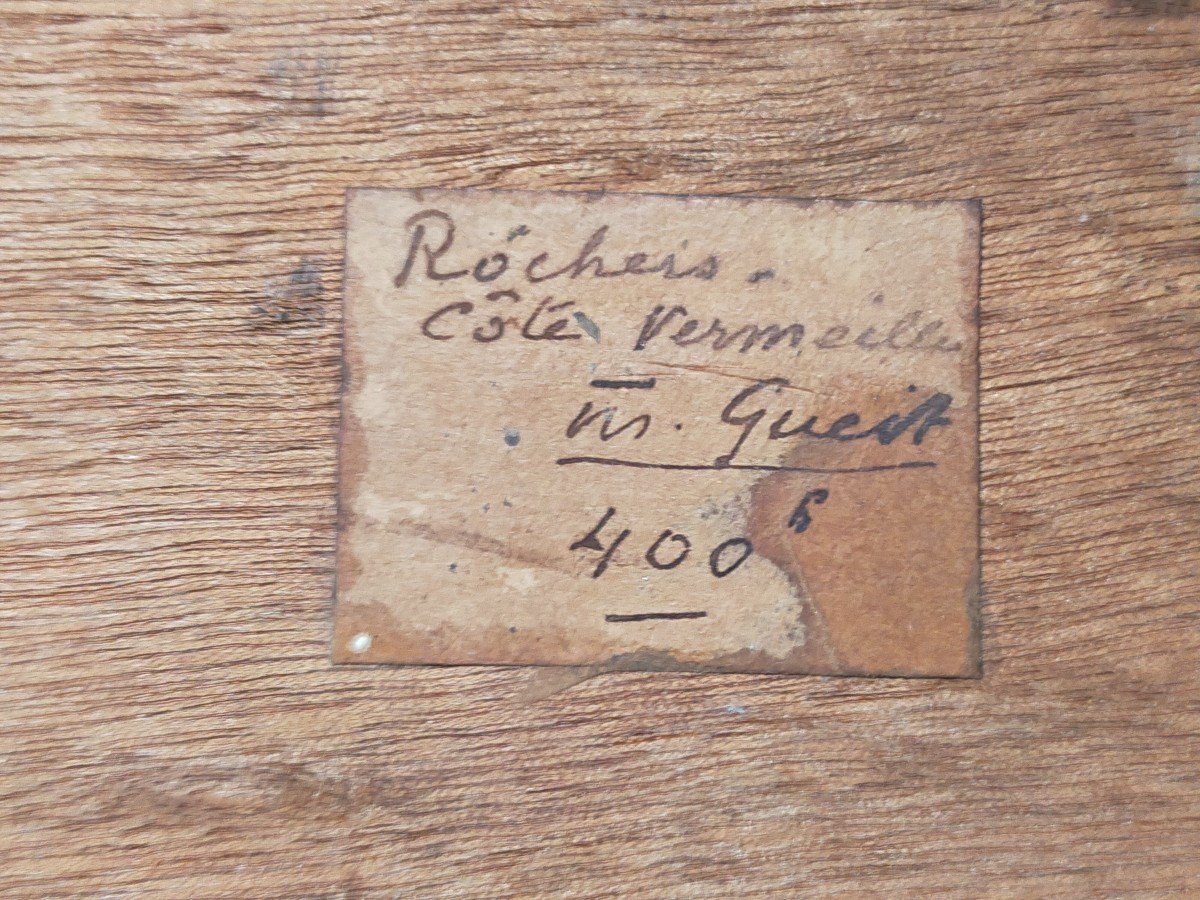 Rochers.
Côte Vermeille
M. Gueit
400 f